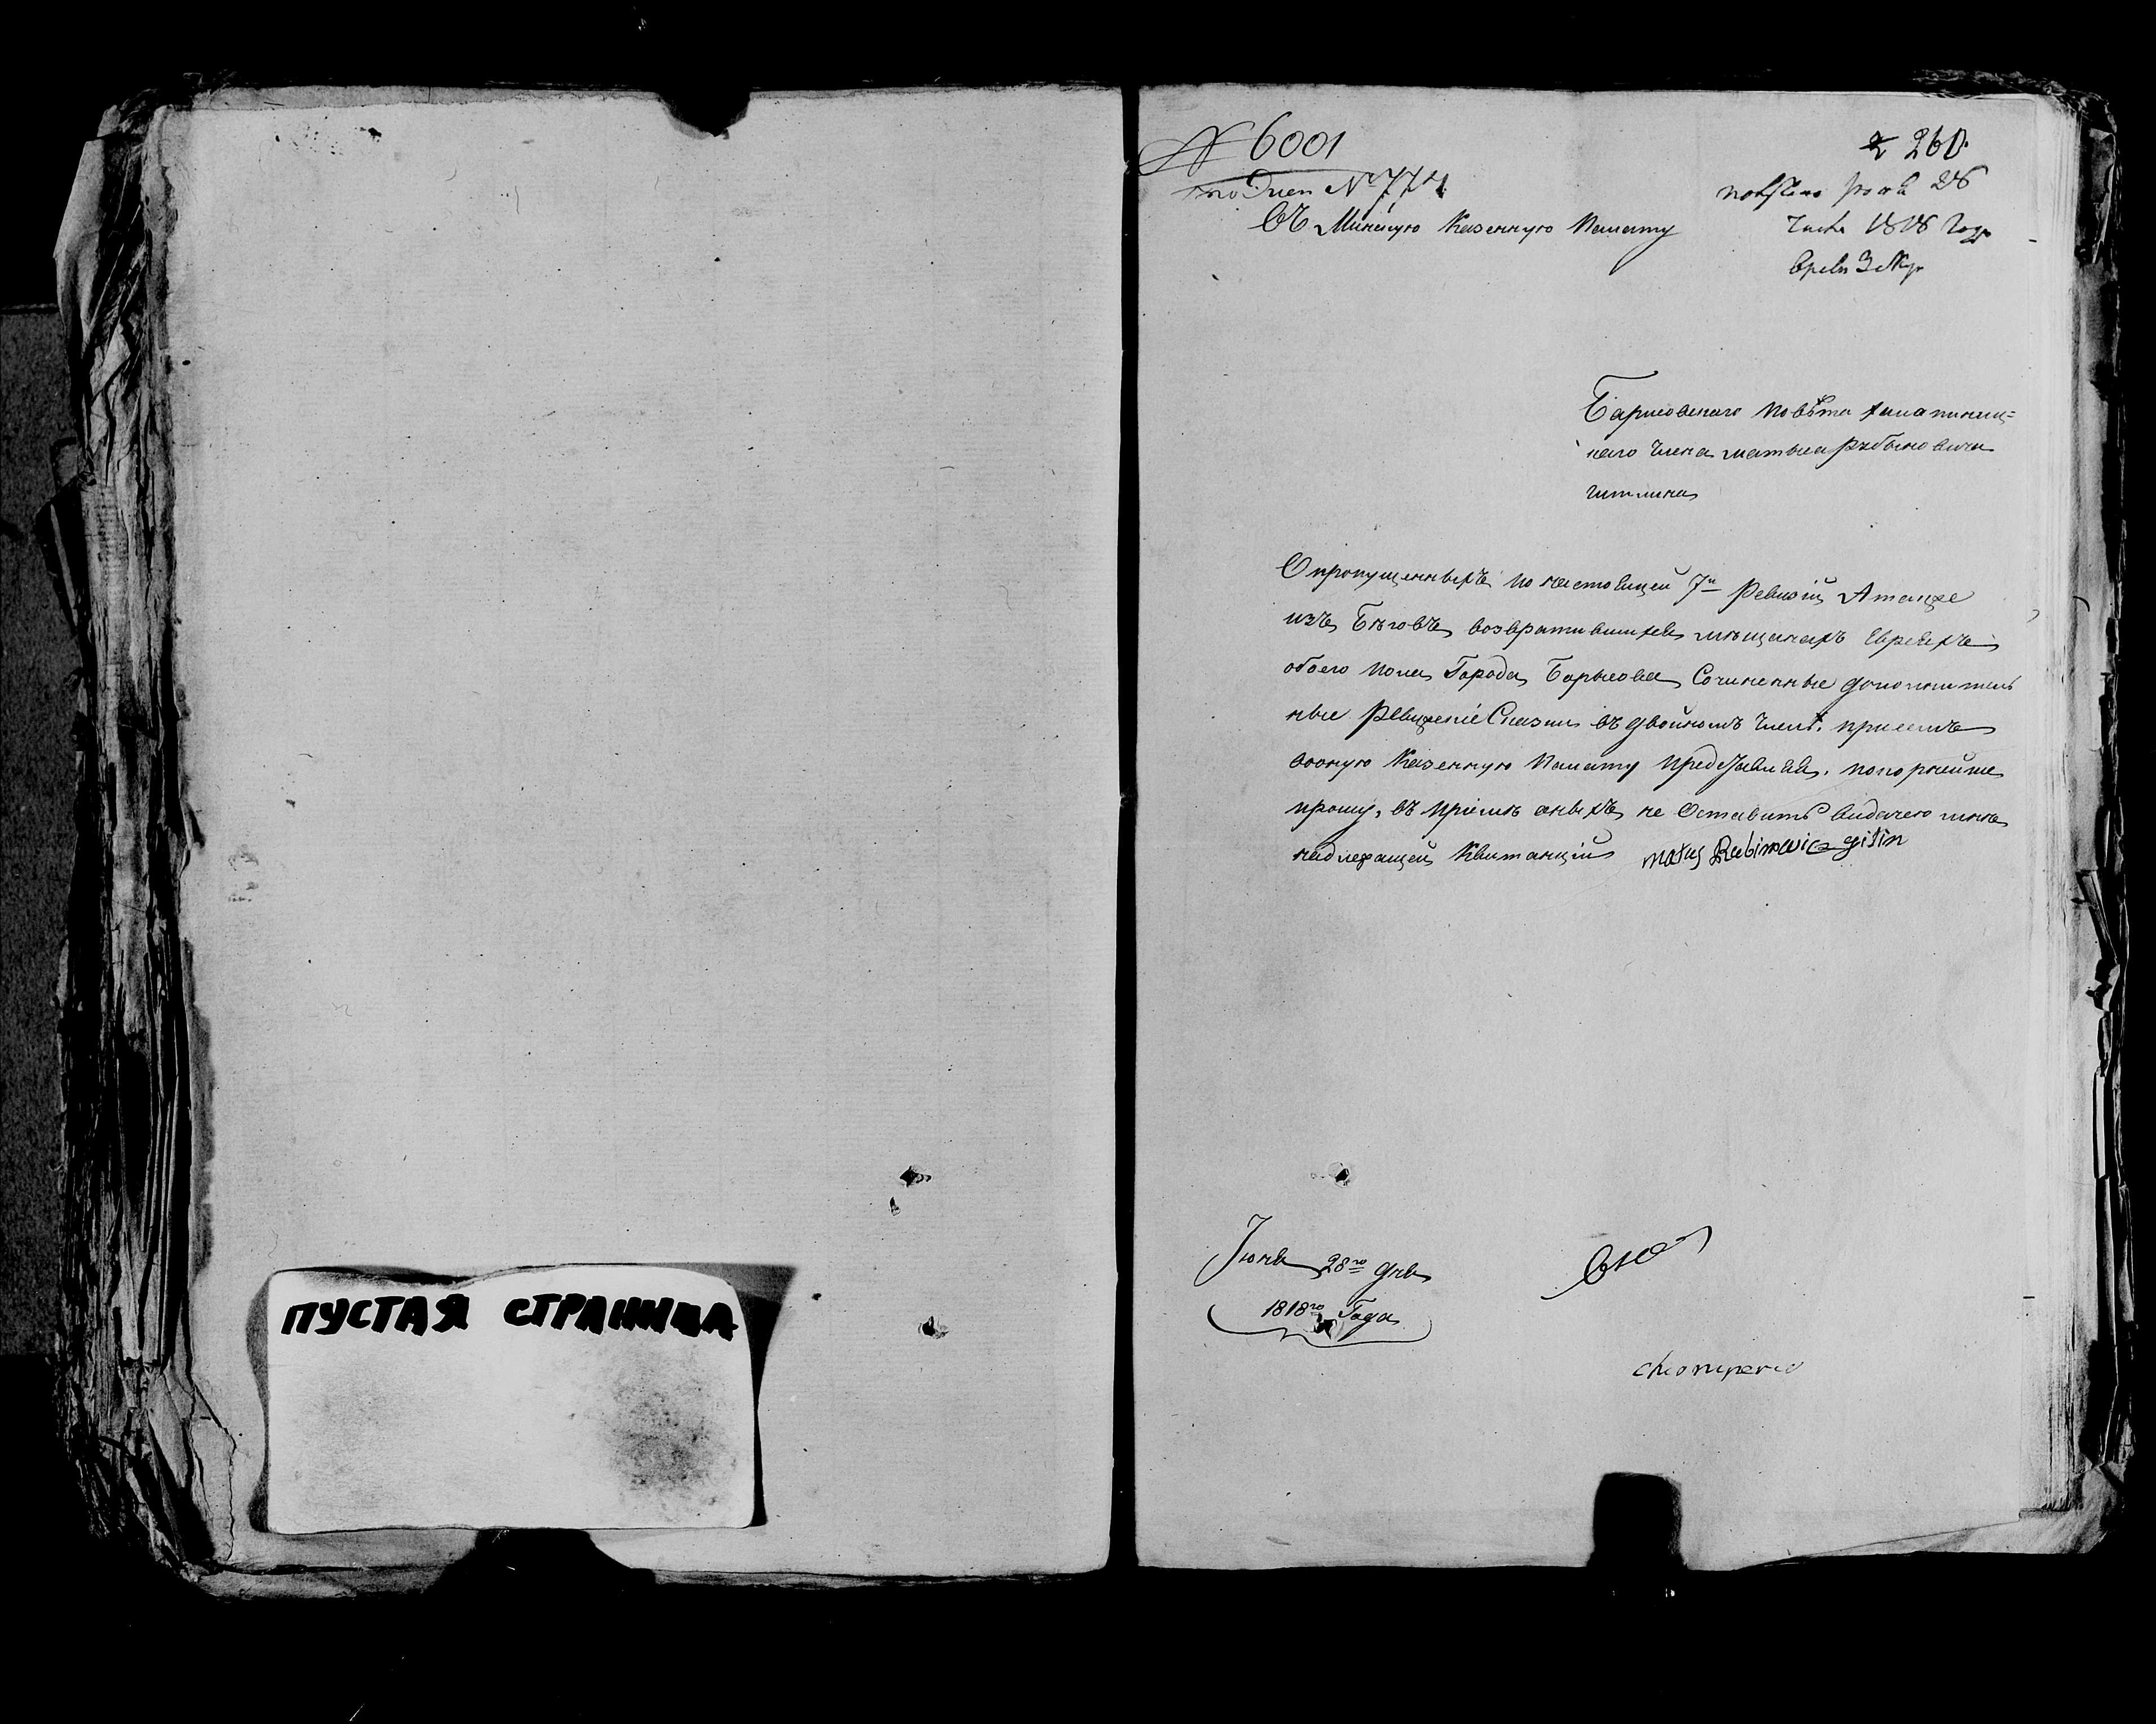 ПУСТАЯ СТРАНИЦА
№ 6001
№ 774
260
въ Минскую Казенную Палату
28
1818 Году
Барисовскаго повѣта
члена
О пропущенныхъ по настоящей 7й Ревизіи Атакже
изъ Бѣговъ возвратившихся мѣщанахъ Евреяхъ
обоего пола Города Барысова Сочиненные дополнитель
ные Ревизскіе Сказки въ двойномъ числѣ. при семъ
вооную Казенную Палату представляя. покорнейше
прошу, въ пріемѣ оныхъ не Оставить видачею мнѣ
надлежащей Квитанціи matus Rubinowicz gitin
Іюня 28го дня
1818го Года